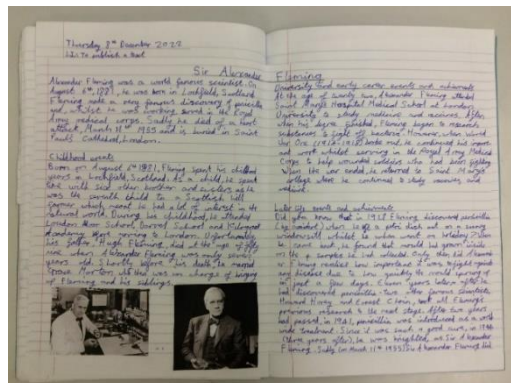 Thursday 8th December 2022
LI: To publish a text
Sir Alexander
Alexander Fleming was a world famous scientist. On
August 6th, 1881, he was born in Lochfield, Scotland.
Fleming made a very famous discovery of penicillin
and, whilst he was working, served in the Royal
Army medical corps. Sadly he died of a heart
attack, March 11th 1955 and is buried in Saint
Paul's Cathedral, London.
Childhood events
Born on August 6th 1881, Fleming spent his childhood
years in Lochfield, Scotland. As a child, he spent
time with his other brother and sisters as he
was the seventh child to a Scottish hill
farmer which meant he had a lot of interest in the
natural world. During his childhood, he attended
Loudon Moor School, Darvel School and Kilmarnock
Academy before moving to London. Unfortunately,
his father, Hugh Fleming, died at the age of fifty
nine when Alexander Fleming was only seven
years old. Shortly before his dad he married
Grace Morton she was in charge of
of Fleming and his siblings.
Fleming
University and early career events and achievements
At the age of twenty two, Alexander Fleming attended
Saint Mary's Hospital Medical School at London
University to study medicine and
when his degree finished, Fleming began to research
substances to fight off bacteria. However, when World
War One (1914-1918) broke out, he continued his
and work whilst serving in the Royal Army Medical
Corps to help wounded soldiers who had been fighting.
When the war ended, he returned to Saint Mary's
where he continued to study
medicine.
Later life events and achievements
Did you know that in 1928 Fleming discovered penicillin
(by accident) when he left a petri dish out on a sunny
windowsill whilst he even went on holiday. When
he came back, he found that mould had grown
on the samples he had Only then did
Fleming realise how important it was to fight against
any disease due to how quickly the mould
in just a few days. Eleven years later after he
had discovered penicillin, two other famous scientists,
Howard Florey and Ernest Chain, took all Fleming's
previous research to the next stage. After two years
had passed, in 1941, penicillin was introduced as a
wide treatment. Since it was such a good cure, in 1944
(three years after), he was knighted, as Sir Alexander
Fleming. Sadly, on March 11th 1955, Sir Alexander Fleming died